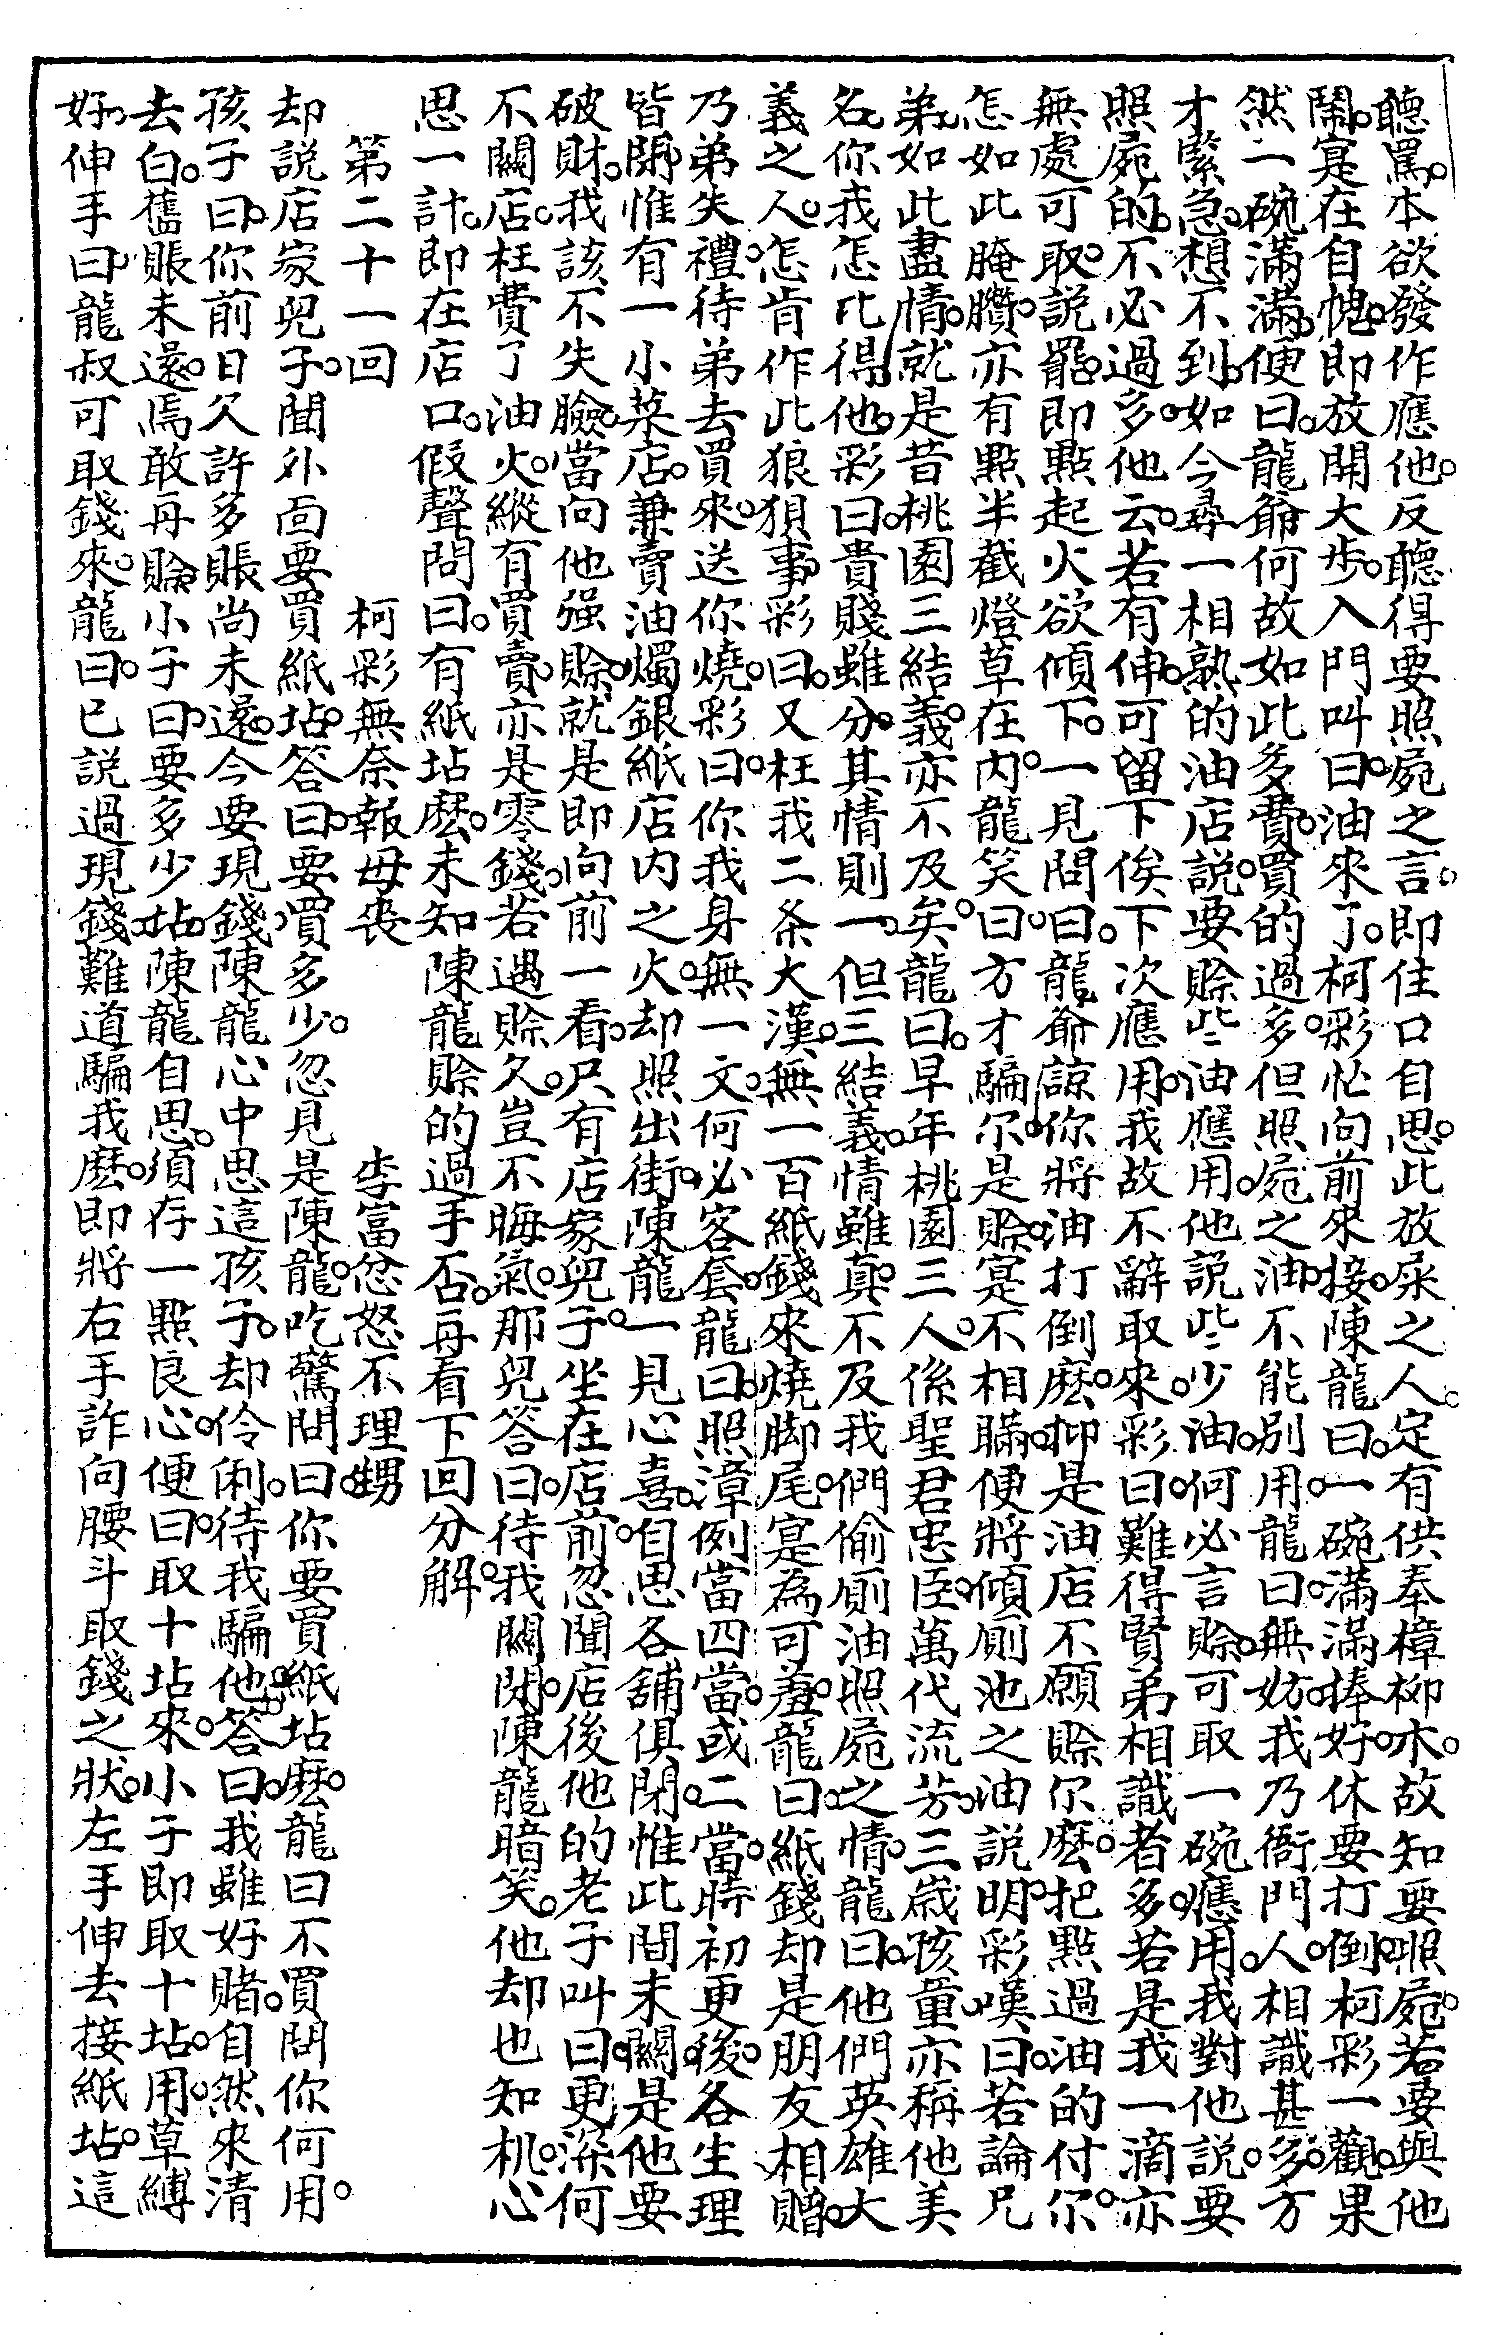 聽罵。本欲發作應他。反聽得要照屍之言。即住口自思。此放屎之人。定有供奉樟柳木。故知要照屍。若要與他
鬧。寔在自愧。即放開大步。入門叫曰。油來了。柯彩忙向前來接。陳龍曰。一碗滿滿捧好。休要打倒。柯彩一觀。果
然一碗滿滿。便曰。龍爺何故如此多費。買的過多。但照屍之油。不能別用。龍曰。無妨。我乃衙門人。相識甚多。方
才緊急。想不到。如今尋一相熟的油店。說要賒些油應用。他說些少油。何必言賒。可取一碗應用。我對他說。要
照屍的。不必過多。他云。若有伸。可留下俟下次應用。我故不辭取來。彩曰。難得賢弟相識者多。若是我一滴亦
無處可取。說罷。即點起火欲傾下。一見問曰。龍爺諒你將油打倒麽。抑是油店不願賒尔麽。把點過油的付尔。
怎如此腌臢。亦有點半截燈草在內。龍笑曰。方才騙尔是賒。寔不相瞞。便將傾厠池之油說明。彩嘆曰。若論兄
弟。如此盡情。就是昔桃園三結義。亦不及矣。龍曰。早年桃園三人。係聖君忠臣。萬代流芳。三歲孩童。亦稱他美
名。你我怎比得他。彩曰。貴賤雖分。其情則一。但三結義。情雖真。不及我們偷厠油照屍之情。龍曰。他們英雄大
義之人。怎肯作此狼狽事。彩曰。又枉我二条大漢。無一百紙錢來燒脚尾。寔為可羞。龍曰。紙錢却是朋友相贈。
乃弟失禮。待弟去買來。送你燒。彩曰。你我身無一文。何必客套。龍曰。照漳例當四當。或二當。時初更後。各生理
皆閉。惟有一小菜店。兼賣油燭銀紙店內之火。却照出街。陳龍一見心喜。自思各舖俱閉。惟此間未關。是他要
破財。我該不失臉。當向他强賒。就是即向前一看。只有店家兒子。坐在店前。忽聞店後他的老子叫曰。更深何
不關店。枉費了油火。縱有買賣。亦是零錢。若遇賒久。豈不晦氣。那兒答曰。待我關閉。陳龍暗笑。他却也知机。心
思一計。即在店口。假聲問曰。有紙坫麽。未知陳龍賒的過手否。再看下回分解。
第二十一回　柯彩無奈報母丧　李富忿怒不理甥
却說店家兒子。聞外面要買紙坫。答曰。要買多少。忽見是陳龍。吃驚問曰。你要買紙坫麽。龍曰不買問你何用。
孩子曰。你前日欠許多賬尚未還。今要現錢。陳龍心中思這孩子。却伶俐。待我騙他。答曰。我雖好賭。自然來清
去白。舊賬未還。焉敢再賒。小子曰。要多少坫。陳龍自思。須存一點良心。便曰。取十坫來。小子即取十坫。用草縛
好。伸手曰。龍叔可取錢來。龍曰。已說過現錢。難道騙我麽。即將右手詐向腰斗取錢之狀。左手伸去接紙坫。這